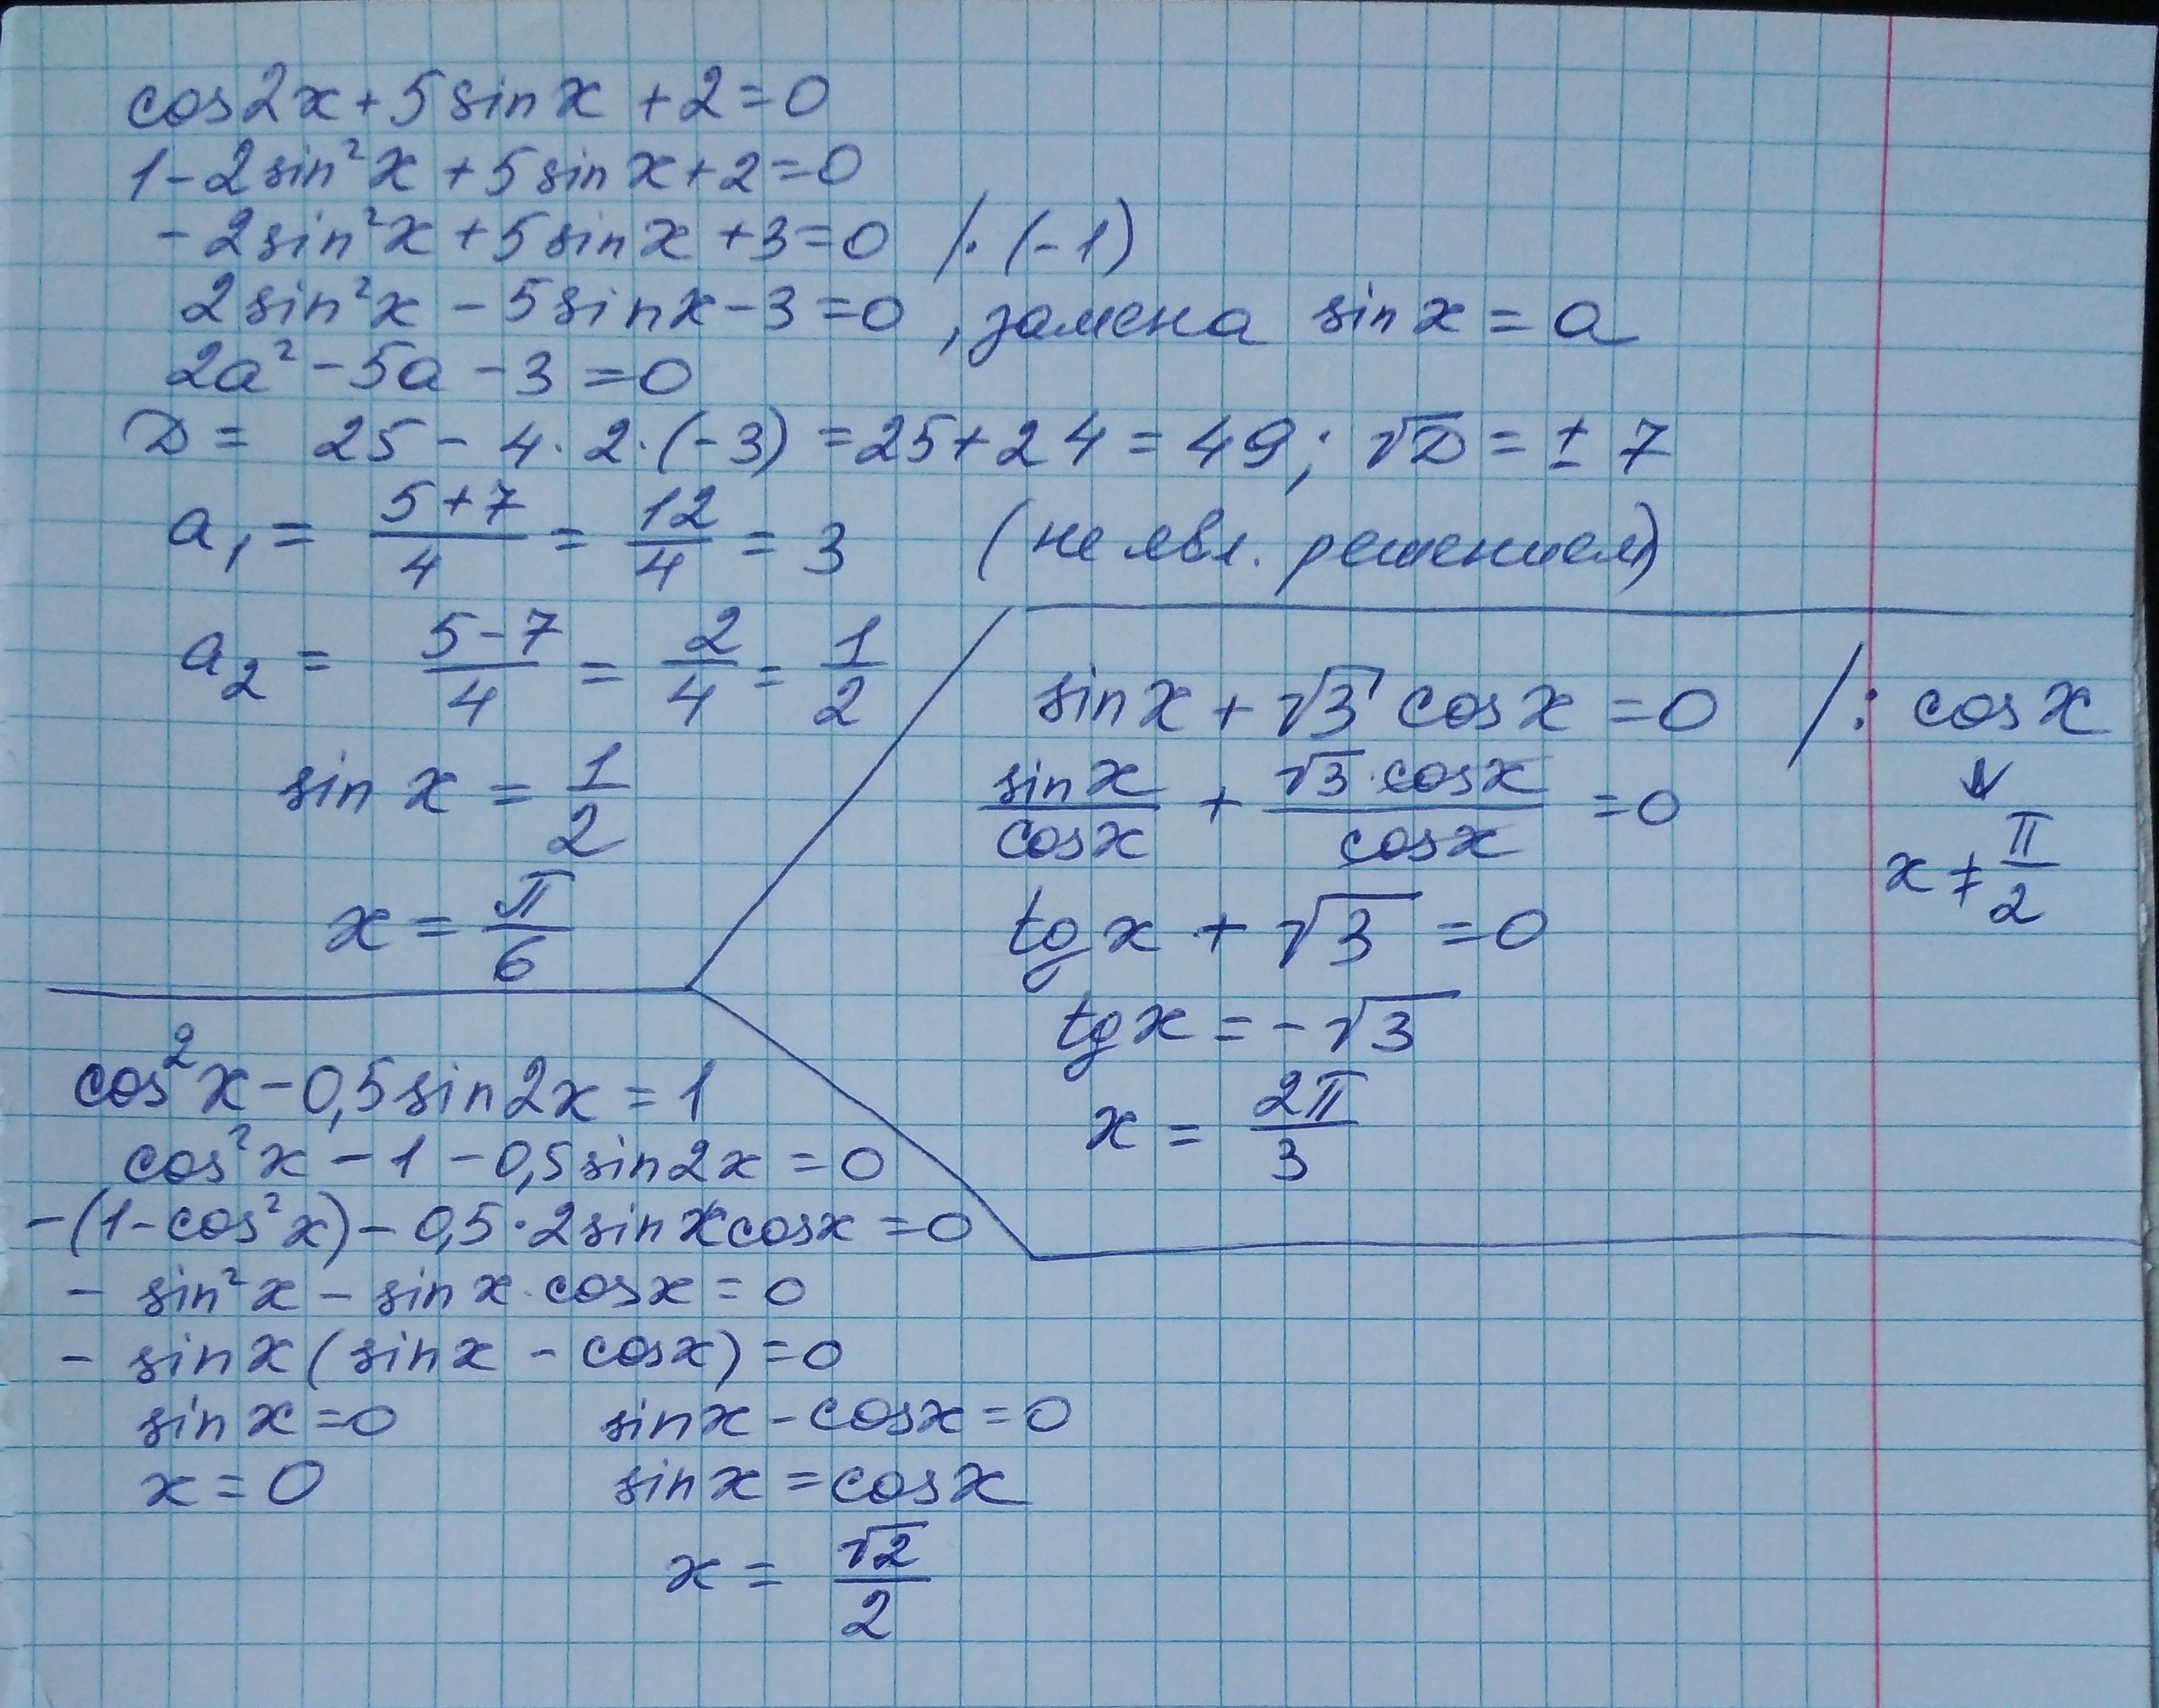 cos2x + 5sinx + 2 = 0
1 - 2sin²x + 5sinx + 2 = 0
- 2sin²x + 5sinx + 3 = 0 /· (-1)
2sin²x - 5sinx - 3 = 0, замена sinx = a
2a² - 5a - 3 = 0
D = 25 - 4·2·(-3) = 25 + 24 = 49; √D = ± 7
a₁ = (5+7)/4 = 12/4 = 3 (не явл. решением)
a₂ = (5-7)/4 = 2/4 = 1/2
sin x = 1/2
x = π/6
sinx + √3 cosx = 0 /: cosx
↓
sinx/cosx + √3·cosx/cosx = 0
x ≠ π/2
tgx + √3 = 0
tgx = -√3
x = 2π/3
cos²x - 0,5sin2x = 1
cos²x - 1 - 0,5sin2x = 0
-(1-cos²x) - 0,5·2sinxcosx = 0
- sin²x - sinx·cosx = 0
- sinx(sinx - cosx) = 0
sinx = 0 sinx - cosx = 0
x = 0 sinx = cosx
x = √2/2